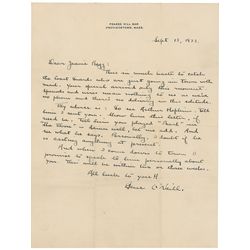 PEAKED HILL BAR
PROVINCETOWN, MASS.
Sept. 13, 1922.
Dear Jeanie Begg:
This in much haste to catch
the Coast Guards who are just going in town with
mail. Your special arrived only this moment.
Specials and wires mean nothing to me as we have
no phone and there's no delivery in this solitude.
My advice is: Go see Arthur Hopkins. Tell
him I sent you. Show him this letter, if
need be. Tell him you played "Paul" in
the "Dove". Then wait, let me add. And
see what he says. Personally, I doubt if he
is casting anything at present.
And when I come down to town I
promise to speak to him personally about
you. This will be within two or three weeks.
All luck to you!
Eugene O'Neill.